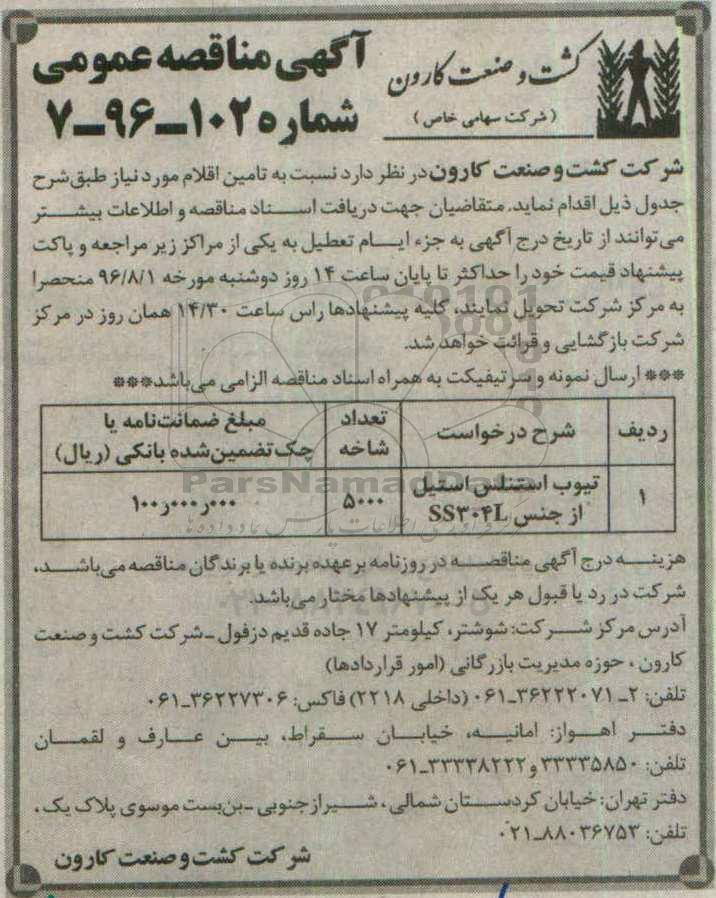 کشت و صنعت کارون
(شرکت سهامی خاص)
آگهی مناقصه عمومی
شماره ۱۰۲-۹۶-۷
شرکت کشت و صنعت کارون در نظر دارد نسبت به تامین اقلام مورد نیاز طبق شرح
جدول ذیل اقدام نماید. متقاضیان جهت دریافت اسناد مناقصه و اطلاعات بیشتر
می‌توانند از تاریخ درج آگهی به جزء ایام تعطیل به یکی از مراکز زیر مراجعه و پاکت
پیشنهاد قیمت خود را حداکثر تا پایان ساعت ۱۴ روز دوشنبه مورخه ۹۶/۸/۱ منحصرا
به مرکز شرکت تحویل نمایند، کلیه پیشنهادها راس ساعت ۱۴/۳۰ همان روز در مرکز
شرکت بازگشایی و قرائت خواهد شد.
*** ارسال نمونه و سرتیفیکت به همراه اسناد مناقصه الزامی می‌باشد***
ردیف شرح درخواست تعداد شاخه مبلغ ضمانت‌نامه یا چک تضمین‌شده بانکی (ریال)
۱ تیوب استنلس استیل از جنس SS۳۰۴L ۵۰۰۰ ۱۰۰٫۰۰۰٫۰۰۰
ParsNamadData
هزینه درج آگهی مناقصه در روزنامه برعهده برنده یا برندگان مناقصه می‌باشد،
شرکت در رد یا قبول هر یک از پیشنهادها مختار می‌باشد.
آدرس مرکز شرکت: شوشتر، کیلومتر ۱۷ جاده قدیم دزفول - شرکت کشت و صنعت
کارون ، حوزه مدیریت بازرگانی (امور قراردادها)
تلفن: ۲-۳۶۲۲۲۰۷۱-۰۶۱ (داخلی ۲۲۱۸) فاکس: ۳۶۲۲۷۳۰۶-۰۶۱
دفتر اهواز: امانیه، خیابان سقراط، بین عارف و لقمان
تلفن: ۳۳۳۳۵۸۵۰ و ۳۳۳۳۸۲۲۲-۰۶۱
دفتر تهران: خیابان کردستان شمالی ، شیراز جنوبی - بن‌بست موسوی پلاک یک،
تلفن: ۸۸۰۳۶۷۵۳-۰۲۱
شرکت کشت و صنعت کارون